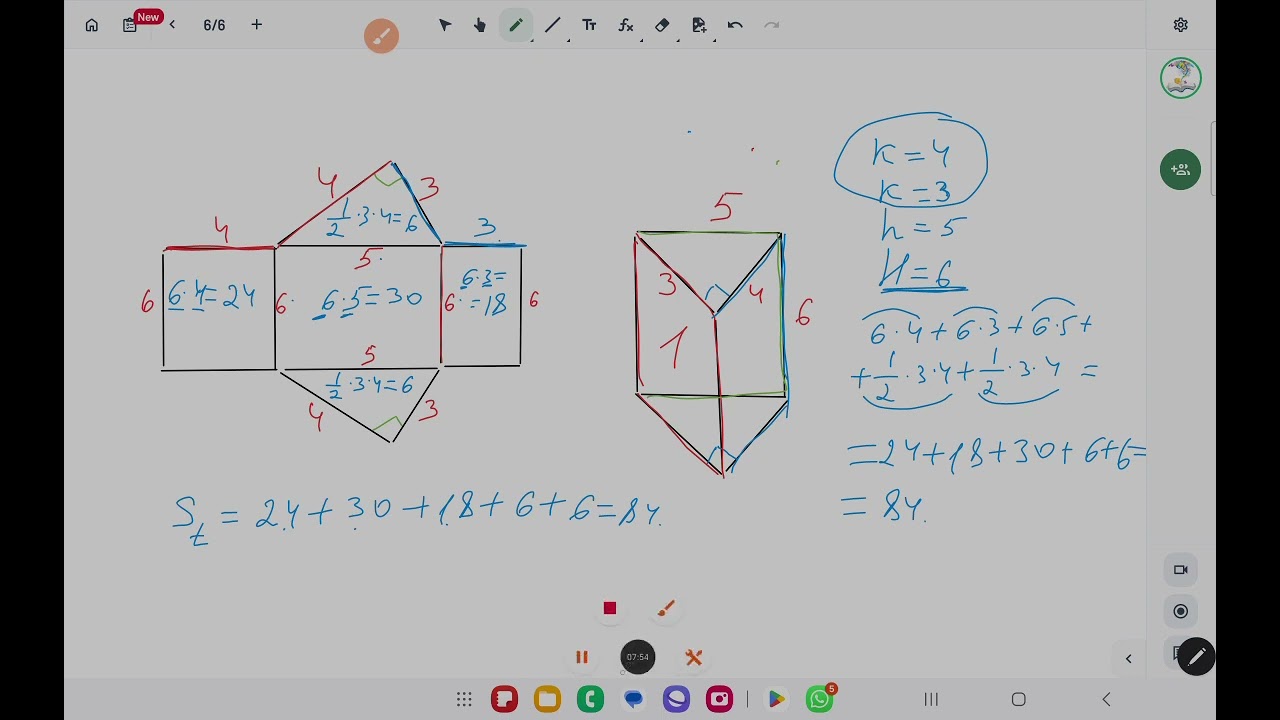 New
6/6
Tт
fx
4
3
1/2·3·4=6
4
3
5
6
6·4=24
6
6·5=30
6
6·3=
=18
6
5
1/2·3·4=6
4
3
5
3
4
6
1
к=4
к=3
h=5
H=6
6·4+6·3+6·5+
+1/2·3·4+1/2·3·4=
=24+18+30+6+6=
=84.
St = 24+30+18+6+6=84.
07:54
5